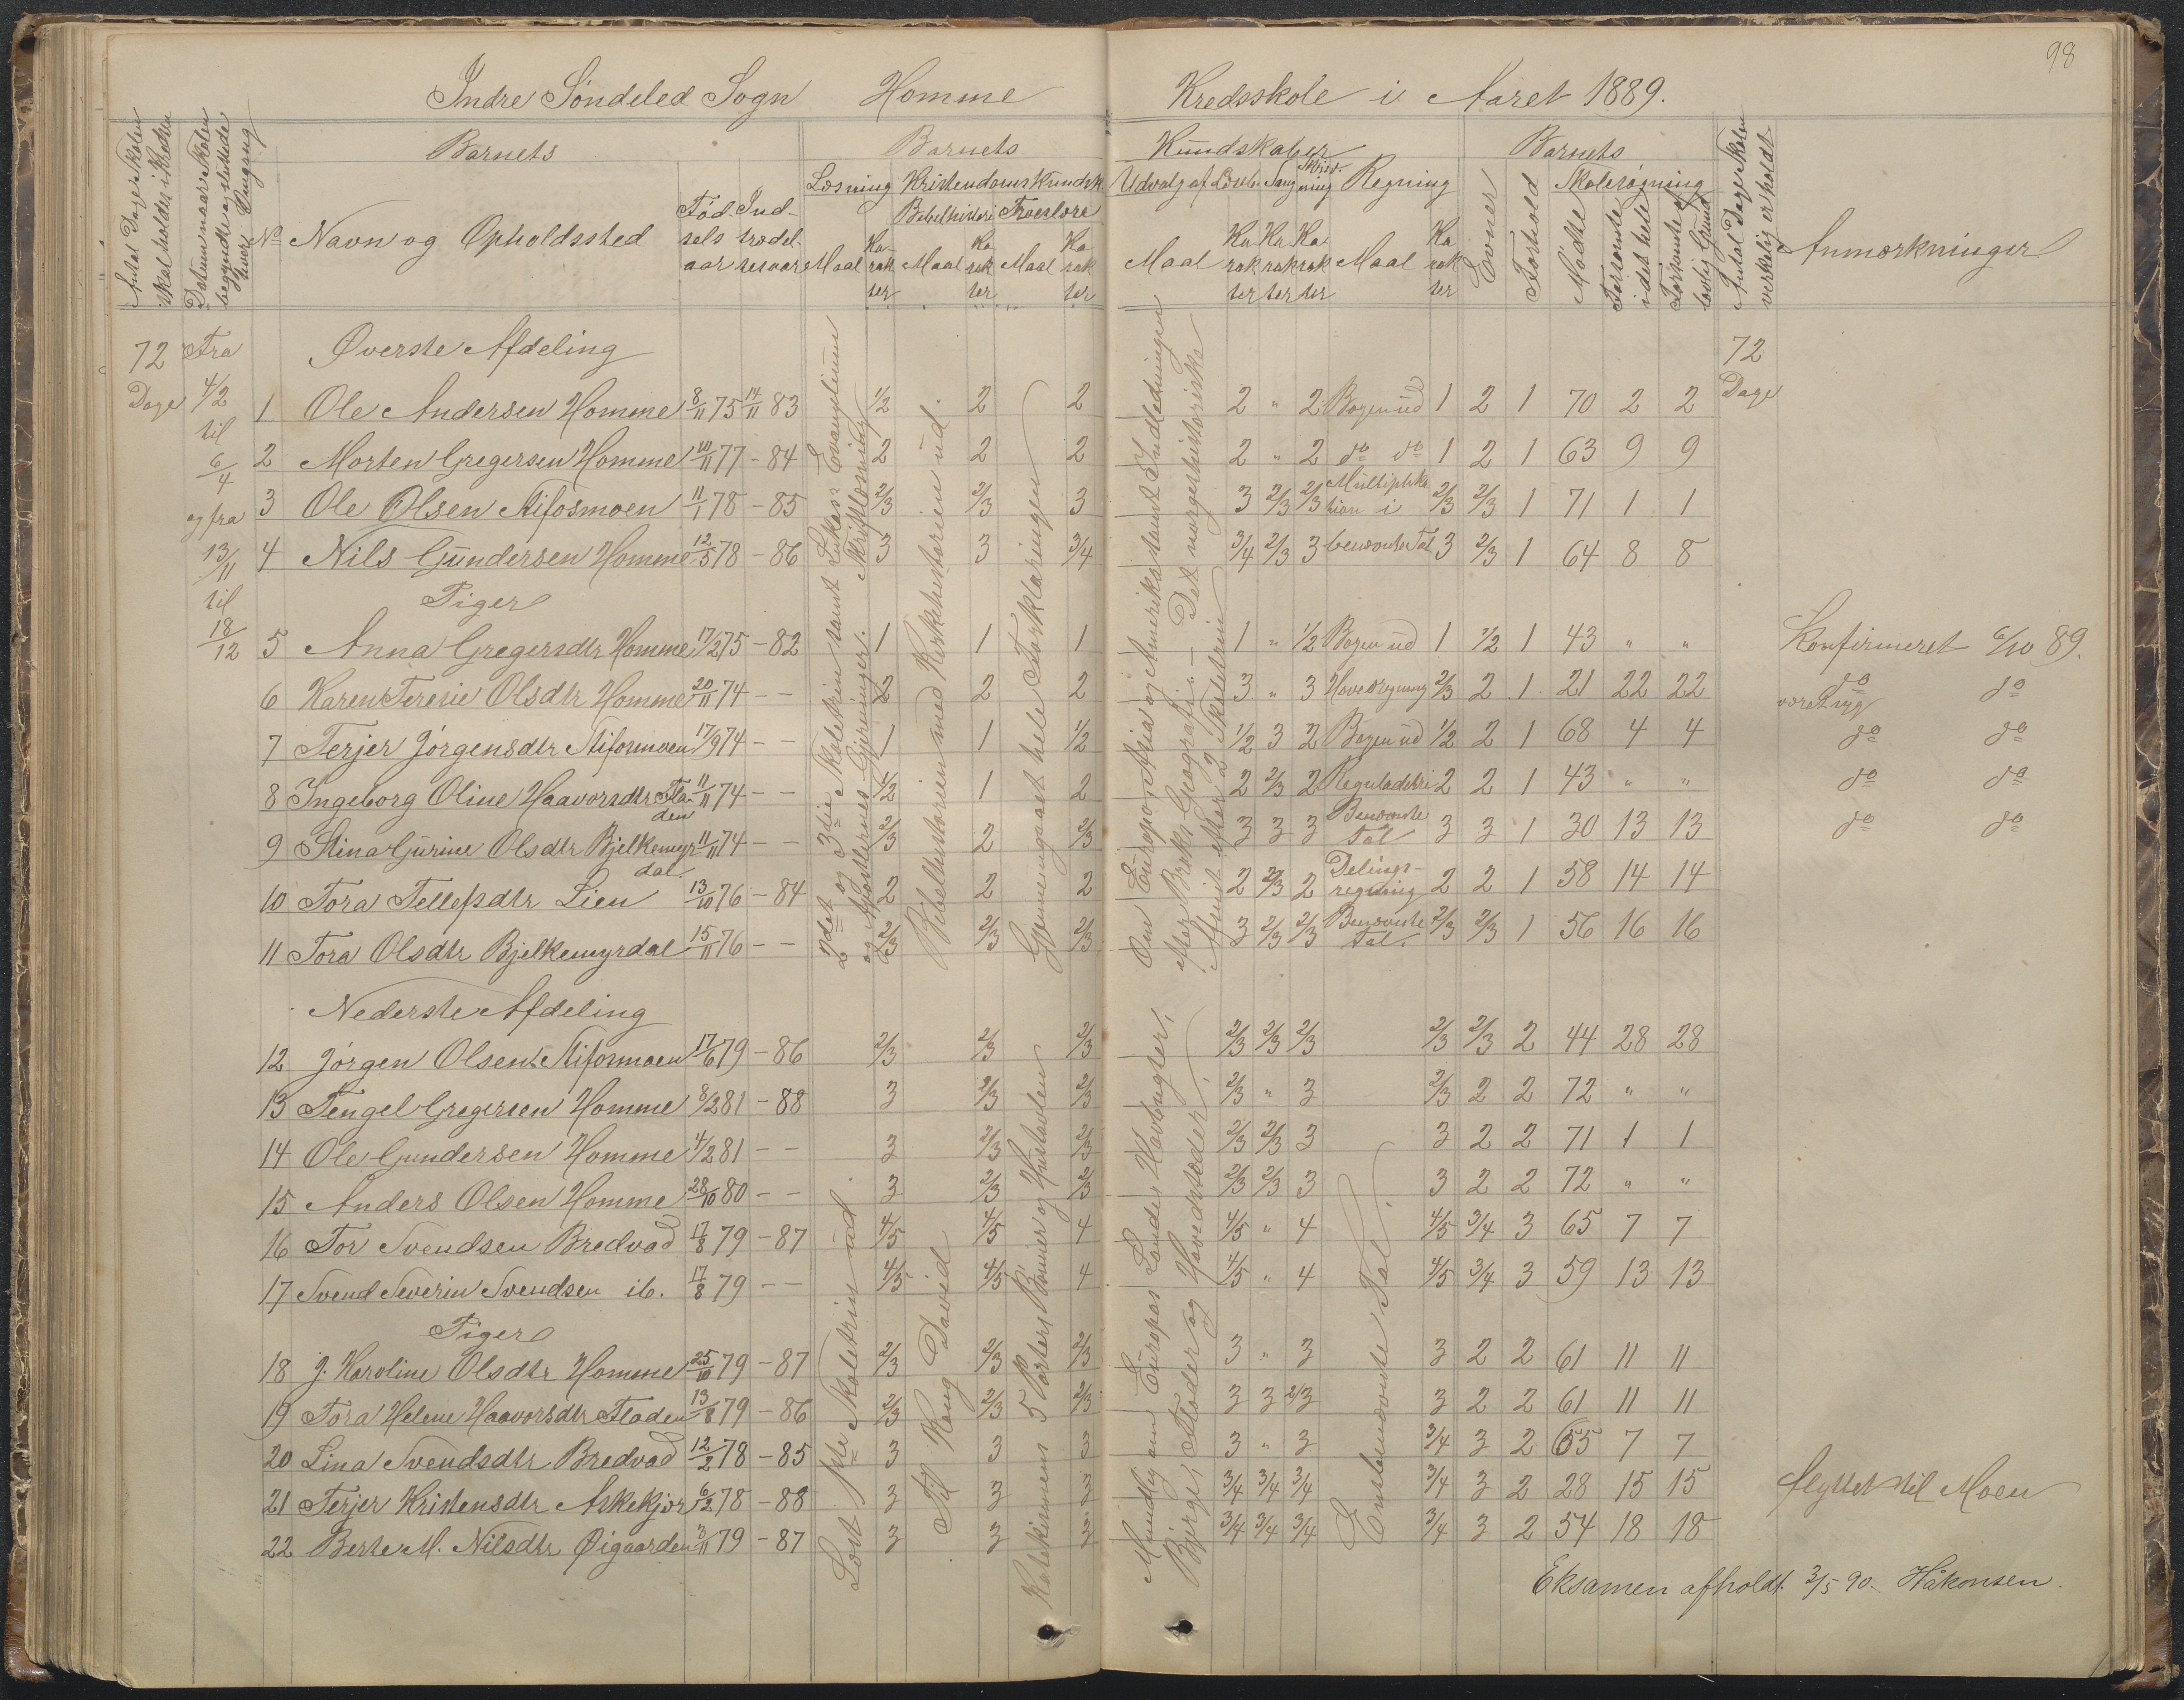 98
Indre Søndeled Sogn Homme Kredsskole i Aaret 1889.
Antal Dage Skolen skal holdes i Kredsen
Datum naar Skolen begyndte og sluttede hver Omgang
Barnets
No Navn og Opholdssted
Fødselsaar Indtrædelsesaar
Barnets Kundskaber
Læsning Kristendomskundsk.
Bibelhistorie Troeslære
Maal Karakter Maal Karakter Maal Karakter
Udvalg af Læseb. Sang Skrivning Regning
Maal Karakter Karakter Karakter Maal Karakter
Barnets
Evner Forhold Skolesøgning
Mødte Forsømte i det hele Forsømte af lovlig Grund
Antal Dage Skolen virkelig er holdt
Anmærkninger
72 Dage Fra 4/2 til 6/4 og fra 13/11 til 18/12
Øverste Afdeling
72 Dage
1 Ole Andersen Homme 8/11 75 14/11 83 1/2 2 2 2 " 2 Bogen ud 1 2 1 70 2 2
2 Morten Gregersen Homme 10/11 77 - 84 2 2 2 2 " 2 do do 1 2 1 63 9 9
3 Ole Olsen Stifosmoen 11/1 78 - 85 2/3 2/3 3 3 2/3 2/3 Multiplikation i 2/3 2/3 1 71 1 1
4 Nils Gundersen Homme 12/5 78 - 86 3 3 3/4 3/4 2/3 3 benævnte Tal 3 2/3 1 64 8 8
Piger
5 Anna Gregersdtr Homme 17/2 75 - 82 1 1 1 1 " 1/2 Bogen ud 1 1/2 1 43 " " Konfirmeret 6/10 89.
6 Karen Teresie Olsdtr Homme 20/11 74 - - 2 2 2 3 " 3 Hovedregning 2/3 2 1 21 22 22 do været syg do
7 Terjer Jørgensdtr Stifosmoen 17/9 74 - - 1 1 1/2 1/2 3 2 Bogen ud 1/2 2 1 68 4 4 do do
8 Ingeborg Oline Haavorsdtr Fladen 11/11 74 - - 1/2 1 2 2 2/3 2 Reguladetri 2 2 1 43 " " do do
9 Stina Gurine Olsdtr Bjelkemyrdal 11/11 74 - - 2/3 2 2/3 3 3 3 Benævnte Tal 3 3 1 30 13 13 do do
10 Tora Tellefsdtr Lien 13/10 76 - 84 2 2 2 2 2/3 2 Delingsregning 2 2 1 58 14 14
11 Tora Olsdtr Bjelkemyrdal 15/11 76 - - 2/3 2/3 2/3 3 2/3 2/3 Benævnte Tal. 2/3 2/3 1 56 16 16
2det og 3die Skoletrin samt Lukas Evangelium
og Apostlernes Gjerninger. Skriftlæsning
Bibelhistorien med Kirkehistorien ud.
Gjennemgaaet hele Forklaringen
Om Europa, Asia og Amerika samt Indledningen
efter Broks Geografi. – Det norgeshistoriske
Afsnit efter 2 Skoletrin
Nederste Afdeling
12 Jørgen Olsen Stifosmoen 17/6 79 - 86 2/3 2/3 2/3 2/3 2/3 2/3 2/3 2/3 2 44 28 28
13 Tengel Gregersen Homme 8/2 81 - 88 3 2/3 2/3 2/3 " 3 2/3 2 2 72 " "
14 Ole Gundersen Homme 4/2 81 - - 3 2/3 2/3 2/3 2/3 3 3 2 2 71 1 1
15 Anders Olsen Homme 28/10 80 - - 3 2/3 2/3 2/3 2/3 3 3 2 2 72 " "
16 Tor Svendsen Bredvad 17/8 79 - 87 4/5 4/5 4 4/5 " 4 4/5 3/4 3 65 7 7
17 Svend Severin Svendsen ib. 17/8 79 - - 4/5 4/5 4 4/5 " 4 4/5 3/4 3 59 13 13
Piger
18 J. Karoline Olsdtr Homme 25/10 79 - 87 2/3 2/3 2/3 3 " 3 3 2 2 61 11 11
19 Tora Helene Haavorsdtr Fladen 13/8 79 - 86 2/3 2/3 2/3 3 3 2/3 3 2 2 61 11 11
20 Lina Svendsdtr Bredvad 12/2 78 - 85 3 3 3 3 " 3 3/4 3 2 65 7 7
21 Terjer Kristensdtr Askekjær 6/12 78 - 88 3 3 3 3/4 3/4 3/4 3/4 3 2 28 15 15 flyttet til Moen
22 Berte M. Nilsdtr Øigaarden 3/11 79 - 87 3 3 3 3/4 3/4 3/4 3/4 3 2 54 18 18
Læst 1ste Skoletrin ud
Til Kong David
Katekismens 5 Parter, Bønner og Hustavlen
Mundlig om Europas Lande, Havbugter,
Bjerge, Floder og Hovedstæder.
Enubenævnte Tal.
Eksamen afholdt 3/5 90. Håkonsen.